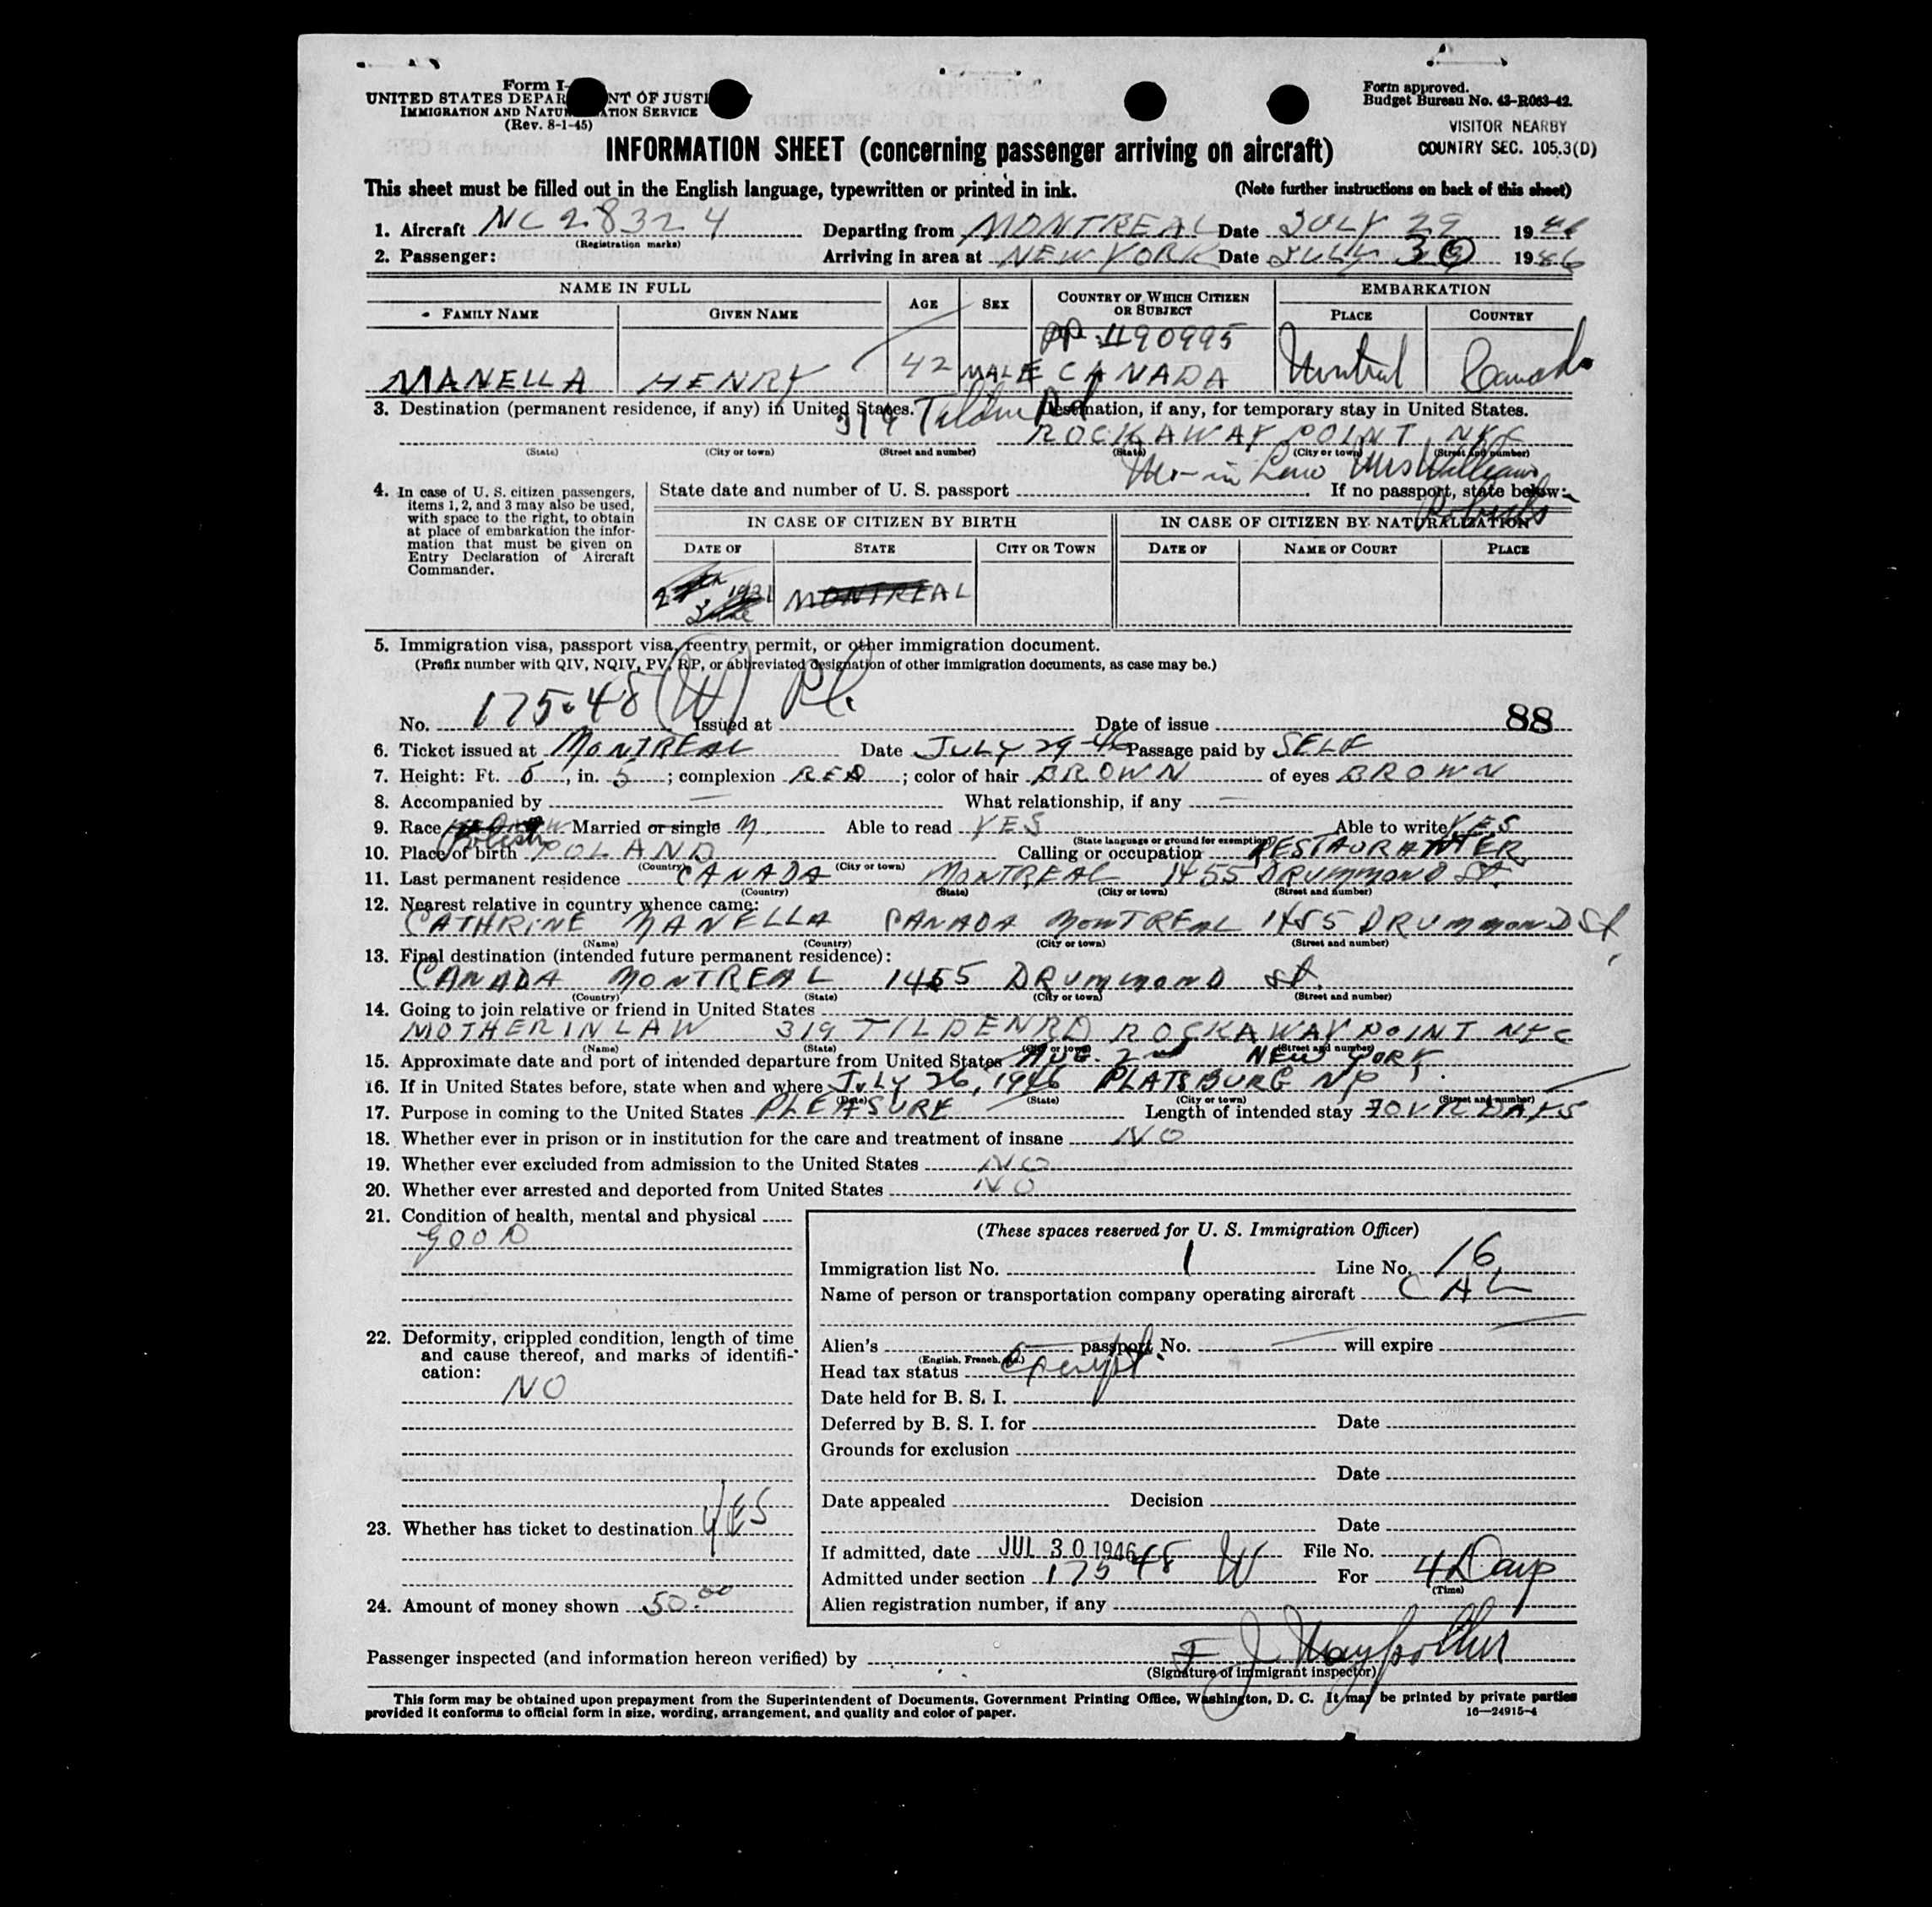 Form I-
UNITED STATES DEPAR NT OF JUSTI
IMMIGRATION AND NATUR ATION SERVICE
(Rev. 8-1-45)
Form approved.
Budget Bureau No. 43-R063-42.
VISITOR NEARBY
COUNTRY SEC. 105.3(D)
INFORMATION SHEET (concerning passenger arriving on aircraft)
This sheet must be filled out in the English language, typewritten or printed in ink. (Note further instructions on back of this sheet)
1. Aircraft NC 28324 Departing from MONTREAL Date JULY 29 1946
(Registration marks)
2. Passenger: Arriving in area at NEW YORK Date JULY 30 1946
NAME IN FULL AGE SEX COUNTRY OF WHICH CITIZEN OR SUBJECT EMBARKATION
FAMILY NAME GIVEN NAME PLACE COUNTRY
PP 490995
MANELLA HENRY 42 MALE CANADA Montreal Canada
3. Destination (permanent residence, if any) in United States. Destination, if any, for temporary stay in United States.
319 Tilden Rd ROCKAWAY POINT NYC
(State) (City or town) (Street and number) (State) (City or town) (Street and number)
Mo-in Law Mrs William Roberts
4. In case of U. S. citizen passengers, items 1, 2, and 3 may also be used, with space to the right, to obtain at place of embarkation the information that must be given on Entry Declaration of Aircraft Commander.
State date and number of U. S. passport If no passport, state below:
IN CASE OF CITIZEN BY BIRTH IN CASE OF CITIZEN BY NATURALIZATION
DATE OF STATE CITY OR TOWN DATE OF NAME OF COURT PLACE
1931 MONTREAL
June
5. Immigration visa, passport visa, reentry permit, or other immigration document.
(Prefix number with QIV, NQIV, PV, RP, or abbreviated designation of other immigration documents, as case may be.)
No. 175.48 (W) Issued at Date of issue 88
6. Ticket issued at MONTREAL Date JULY 29-46 Passage paid by SELF
7. Height: Ft. 5, in. 5; complexion RED; color of hair BROWN of eyes BROWN
8. Accompanied by — What relationship, if any —
9. Race Polish Married or single M. Able to read YES Able to write YES
(State language or ground for exemption)
10. Place of birth POLAND Calling or occupation RESTAURANTER
(Country) (City or town)
11. Last permanent residence CANADA MONTREAL 1455 DRUMMOND St.
(Country) (State) (City or town) (Street and number)
12. Nearest relative in country whence came:
CATHRINE MANELLA CANADA MONTREAL 1455 DRUMMOND St.
(Name) (Country) (City or town) (Street and number)
13. Final destination (intended future permanent residence):
CANADA MONTREAL 1455 DRUMMOND St.
(Country) (State) (City or town) (Street and number)
14. Going to join relative or friend in United States
MOTHER IN LAW 319 TILDEN RD ROCKAWAY POINT NYC
(Name) (State) (City or town) (Street and number)
15. Approximate date and port of intended departure from United States AUG. 2nd NEW YORK
16. If in United States before, state when and where JULY 26, 1946 PLATSBURG NY
(Date) (State) (City or town) (Street and number)
17. Purpose in coming to the United States PLEASURE Length of intended stay FOUR DAYS
18. Whether ever in prison or in institution for the care and treatment of insane NO
19. Whether ever excluded from admission to the United States NO
20. Whether ever arrested and deported from United States NO
21. Condition of health, mental and physical
GOOD
22. Deformity, crippled condition, length of time and cause thereof, and marks of identification:
NO
23. Whether has ticket to destination YES
24. Amount of money shown 50.00
(These spaces reserved for U. S. Immigration Officer)
Immigration list No. 1 Line No. 16
Name of person or transportation company operating aircraft CAL
Alien's passport No. — will expire
(English, French, etc.)
Head tax status Exempt.
Date held for B. S. I.
Deferred by B. S. I. for Date
Grounds for exclusion
Date
Date appealed Decision
Date
If admitted, date JUL 30 1946 File No.
Admitted under section 175 48 W For 4 Days
(Time)
Alien registration number, if any
Passenger inspected (and information hereon verified) by
(Signature of immigrant inspector)
This form may be obtained upon prepayment from the Superintendent of Documents, Government Printing Office, Washington, D. C. It may be printed by private parties
provided it conforms to official form in size, wording, arrangement, and quality and color of paper. 16—24915-4